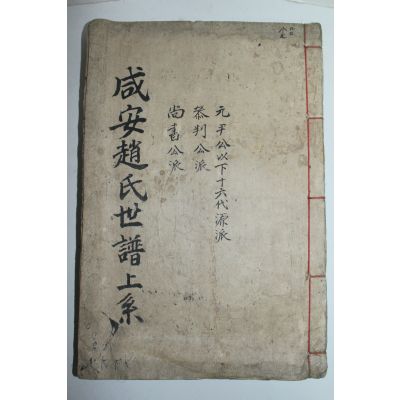 元平公以下十六代源派
參判公派
尙書公派
咸安趙氏世譜上系